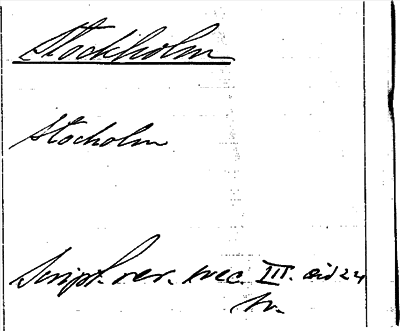 Stockholm
Stocholm
Script. rer. svec. III. avd 2 4
hr.